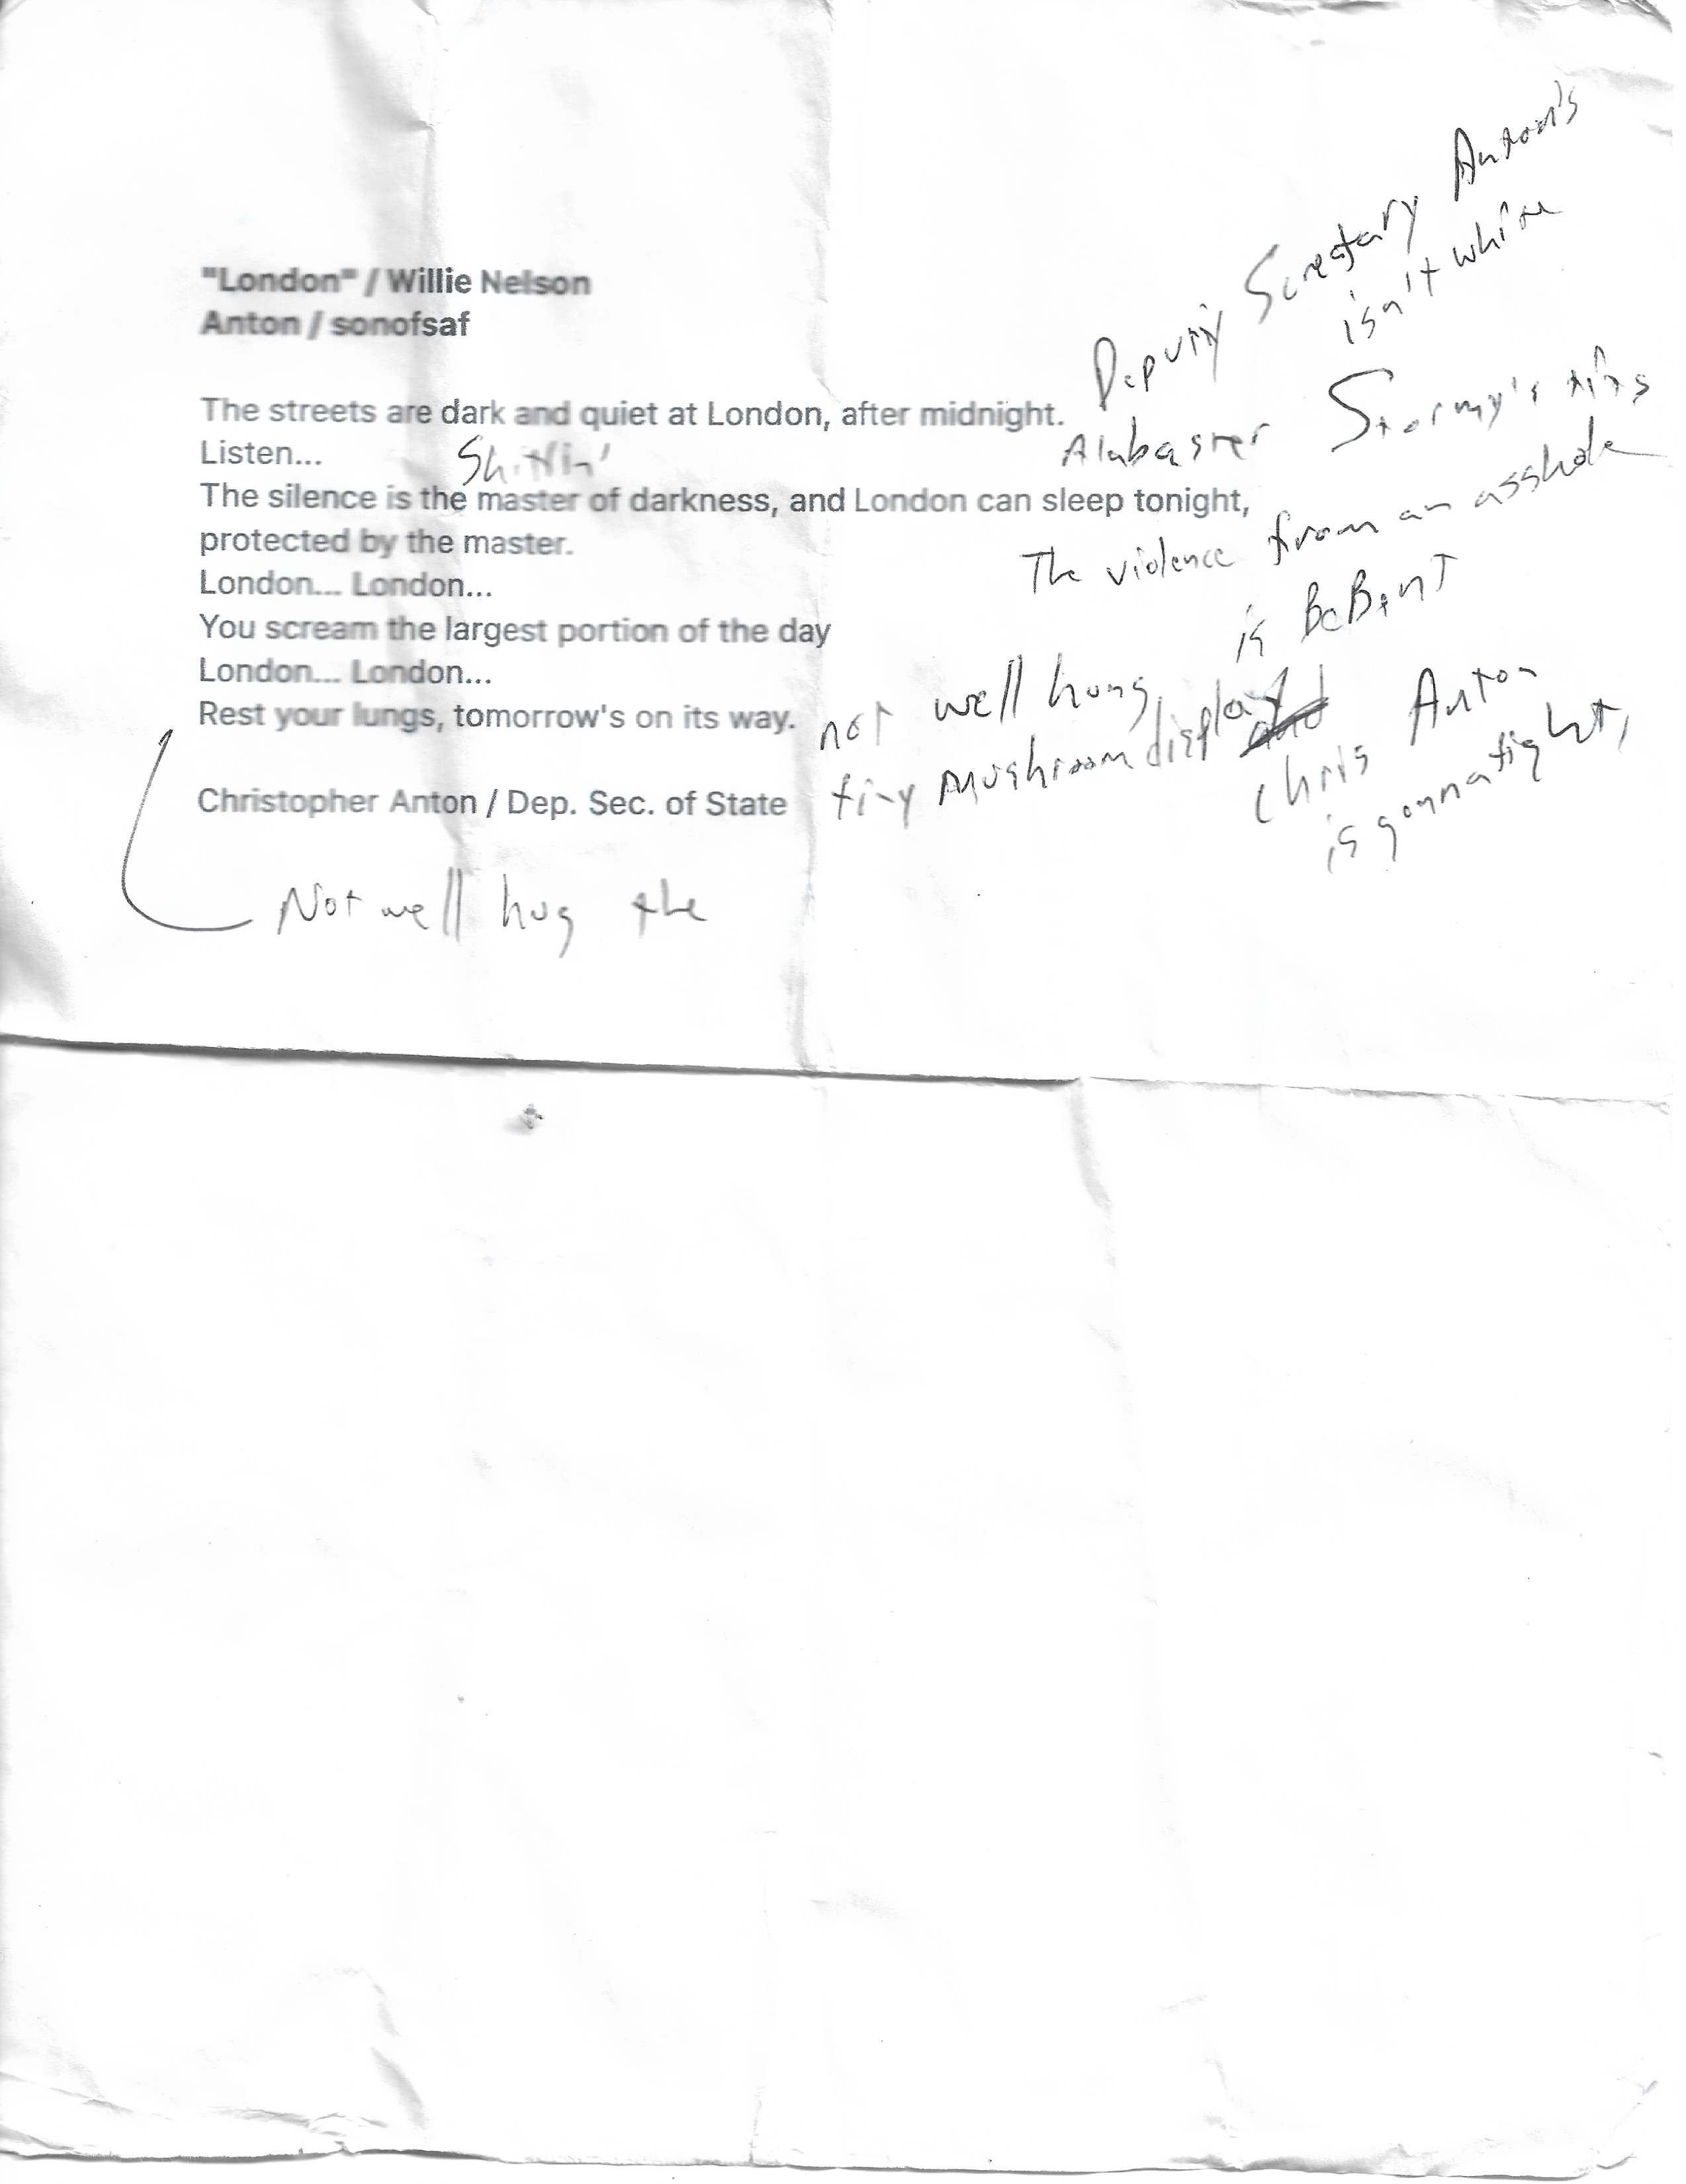 "London" / Willie Nelson
Anton / sonofsaf
The streets are dark and quiet at London, after midnight.
Listen...
Shittin'
The silence is the master of darkness, and London can sleep tonight,
protected by the master.
London... London...
You scream the largest portion of the day
London... London...
Rest your lungs, tomorrow's on its way.
Christopher Anton / Dep. Sec. of State
Not well hug the
Deputy Secretary Anton's
isn't white
Alabaster Stormy's tits
The violence from an asshole
is
not well hung,
tiny mushroom display
Chris Anton
is gonna fight,